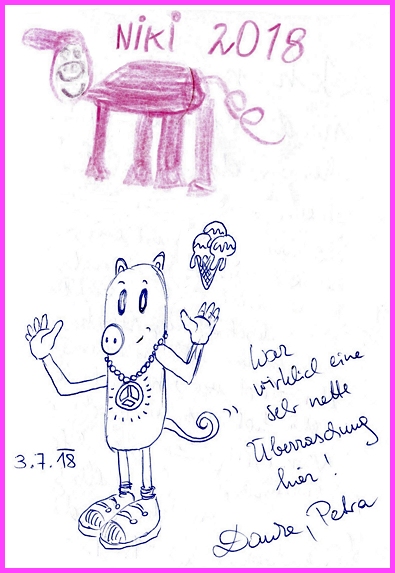 NIKI 2018
3.7.18
War
wirklich eine
sehr nette
Überraschung
hier!
Danke, Petra